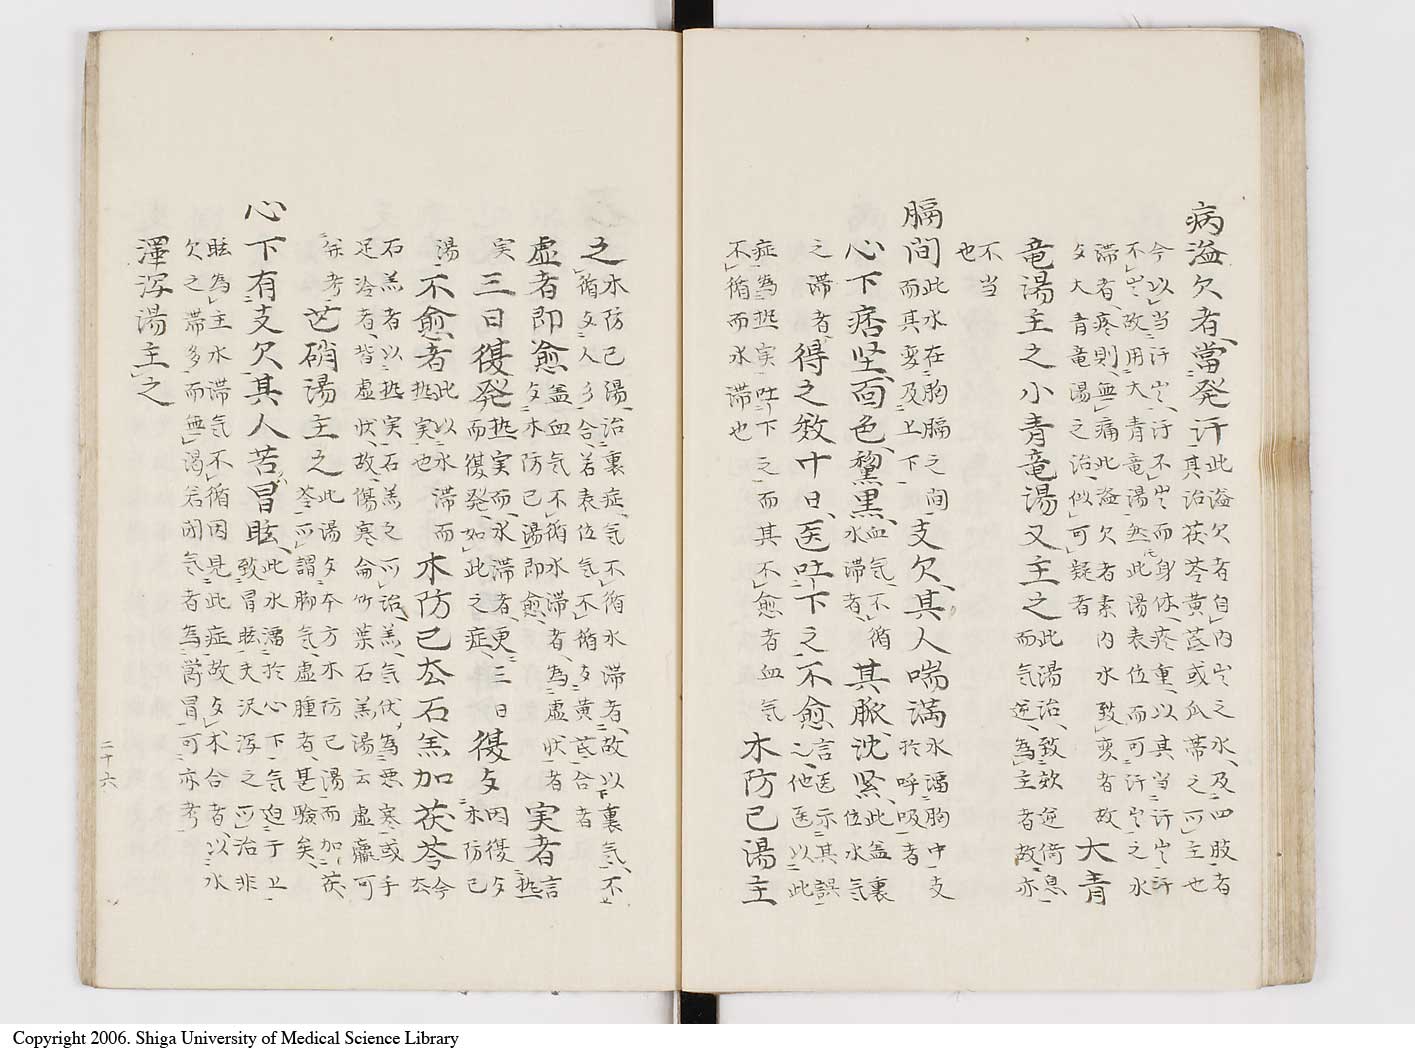 病溢欠者、當発汗此溢欠者自内出之水、及四肢者
其治茯苓黄茋或瓜蒂之所主也
今以当汗出、汗不出而身体、疼重、以其当汗出汗
不出、故用大青竜湯然此湯表位而可汗出之水
滞者、疼則、無痛此溢欠者素内水致変者故
攵大青竜湯之治、似可疑者大青
竜湯主之小青竜湯又主之此湯治、致欬逆倚息
而気逆、為主者故亦
不当
也
膈間此水在胸膈之間
而其変及上下支欠、其人喘満水溜胸中支
於呼吸者
心下痞坚、面色、黧黒、血気不循
水滞者、其脈、沈緊、此盖裏
位水気
之滞者、得之数十日、医吐下之不愈言医示其誤
之、他医以此
症為热実吐下之而其不愈者血気
不循而水滞也木防已湯主
之木防已湯、治裏症、気不循水滞者、故以裏気、不
循攵人彡合、若表位気不循攵黄茋合者
虚者即愈盖血気不循水滞者、為虚状者
攵木防已湯即愈、実者言
热
実三日復発热実而、水滞者、更、三日復攵因復攵
而復発如此之症、木防已
湯不愈者此以水滞而
热実也木防已厺石羔加茯苓今
厺
石羔者以热実石羔之所治、羔、気伏、為悪寒或手
足冷者、皆虚状、故、傷寒侖竹葉石羔湯云虚羸可
併考芒硝湯主之此湯攵本方木防已湯而加茯、
苓所謂胸気虚腫者、甚験矣、
心下有支欠、其人苦冒眩、此水溜於心下気迫于上
致冒眩夫沢泻之所治非
眩為主水滞気不循因見此症故攵术合者、以水
欠之滞多而無渴若闭気者為欝冒可亦考
澤泻湯主之
二十六
Copyright 2006. Shiga University of Medical Science Library